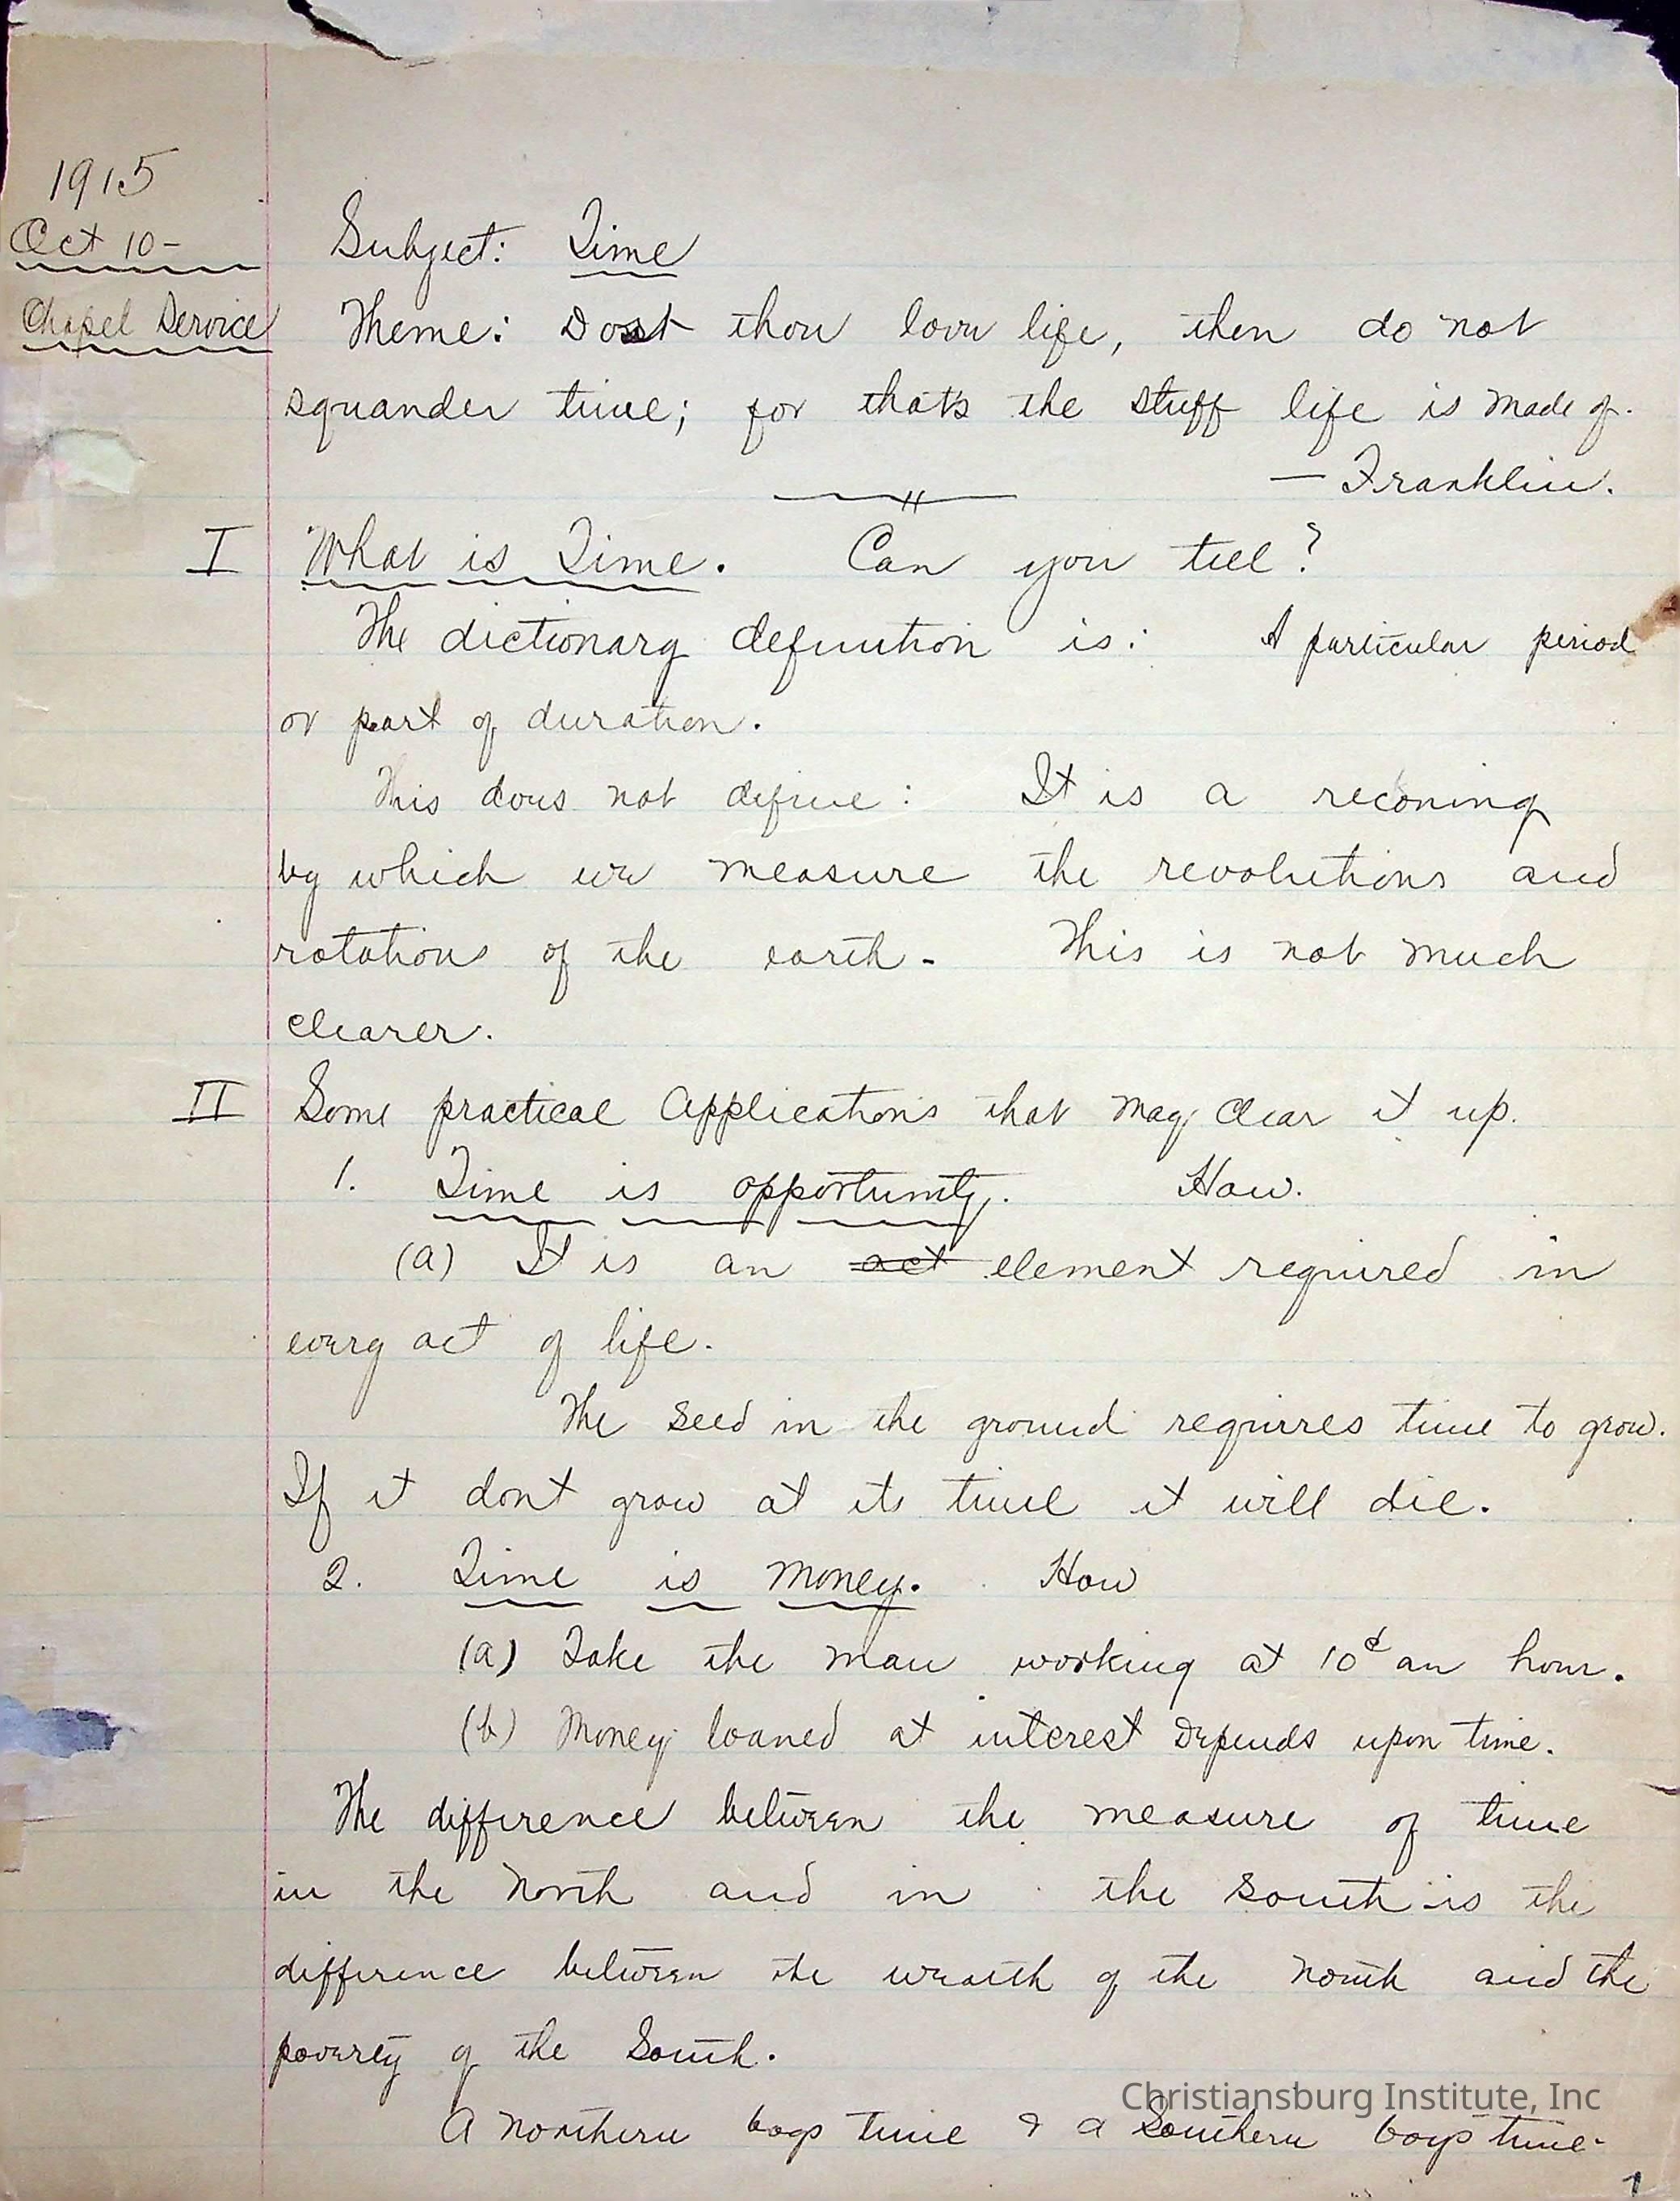 1915
Oct 10-
Chapel Service
Subject: Time
Theme: Dost thou love life, then do not
squander time; for that's the stuff life is made of.
— Franklin.
I What is Time. Can you tell?
The dictionary definition is: A particular period
or part of duration.
This does not define: It is a reconing
by which we measure the revolutions and
rotations of the earth- This is not much
clearer.
II Some practical Applications that may clear it up.
1. Time is opportunity. How.
(a) It is an act element required in
every act of life.
The seed in the ground requires time to grow.
If it dont grow at its time it will die.
2. Time is money. How
(a) Take the man working at 10¢ an hour.
(b) Money loaned at interest Depends upon time.
The difference between the measure of time
in the North and in the South is the
difference between the wealth of the North and the
poverty of the South.
A Northern boys time & a Southern boys time-
Christiansburg Institute, Inc
1